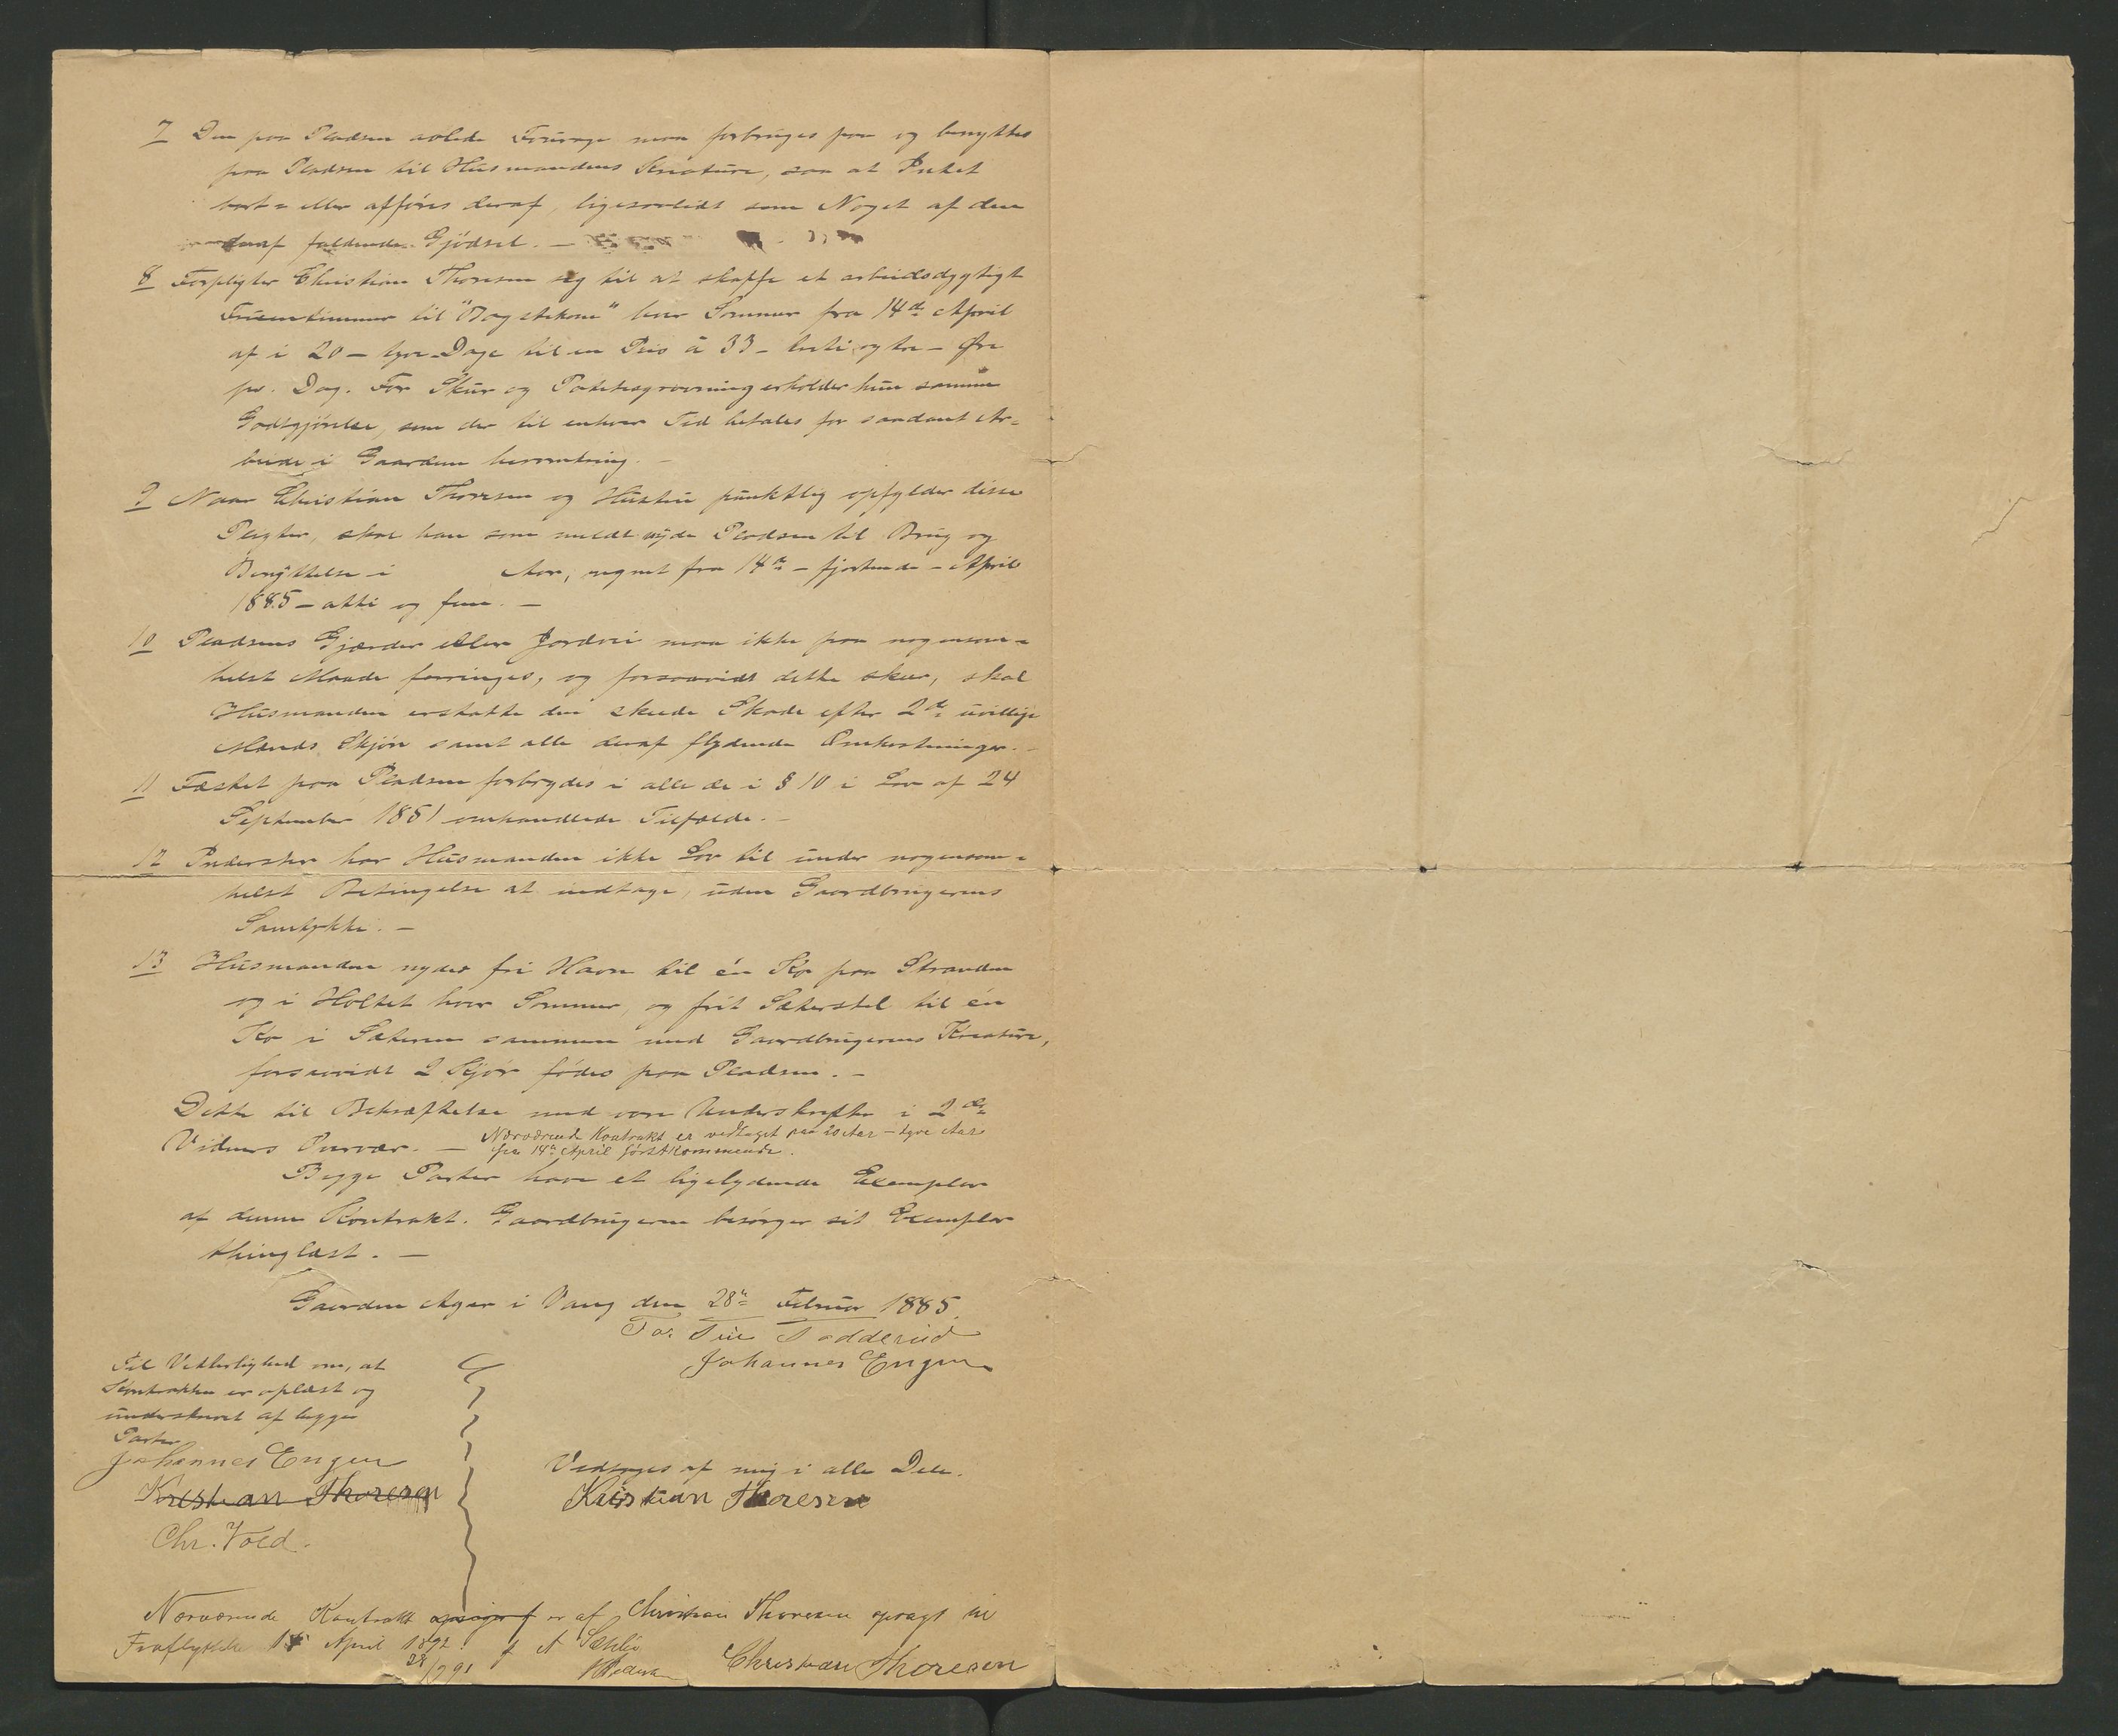 7 Den paa Pladsen avlede Fourage maa forbruges paa og benyttes
paa Pladsen til Husmandens Kreature, saa at Intet
bort= eller afføres deraf, ligesaalidt som Noget af den
deraf faldende Gjødsel. —
8 Forpligter Christian Thoresen sig til at skaffe et arbeidsdygtigt
Fruentimmer til "Dagstekone" hver Sommer fra 14de April
af i 20 — tyve Dage til en Pris à 33 — treti og tre — Øre
pr. Dag. For Skur og Potetesgravning erholder hun samme
Godtgjørelse, som der til enhver Tid betales for saadant Ar=
beide i Gaarden heromkring. —
9 Naar Christian Thoresen og Hustru punktlig opfylder disse
Pligter, skal han som meldt nyde Pladsen til Brug og
Benyttelse i Aar, regnet fra 14de — fjortende — April
1885 — otti og fem. —
10 Pladsens Gjærder eller Jordvei maa ikke paa nogensom=
helst Maade forringes, og forsaavidt dette skeer, skal
Husmanden erstatte den skeede Skade efter 2de uvillige
Mænds Skjøn samt alle deraf flydende Omkostninger. —
11 Fæstet paa Pladsen forbrydes i alle de i § 10 i Lov af 24
September 1851 omhandlede Tilfælde. —
12 Inderster har Husmanden ikke Lov til under nogensom=
helst Betingelse at indtage, uden Gaardbrugerens
Samtykke. —
13 Husmanden nyder fri Havn til én Ko paa Stranden
og i Holtet hver Sommer, og frit Sæterstel til én
Ko i Sæteren sammen med Gaardbrugerens Kreature,
forsaavidt 2 Kjør fødes paa Pladsen. —
Dette til Bekræftelse med vore Underskrifter i 2de
Vidners Overvær. — Nærværende Kontrakt er vedtaget paa 20 Aar — tyve Aar
fra 14de April førstkommende.
Begge Parter have et ligelydende Exemplar
af denne Kontrakt. Gaardbrugeren besørger sit Exemplar
thinglæst. —
Gaarden Ager i Vang den 28de Februar 1885.
For
Johannes Engen
Til Vitterlighed om, at
Kontrakten er oplæst og
underskrevet af begge
Parter
Johannes Engen
Kristian Thoresen
Chr. Vold.
Vedtages af mig i alle Dele.
Kristian Thoresen
Nærværende Kontrakt er af Christian Thoresen opsagt til
Fraflyttelse April 1892.
Christian Thoresen